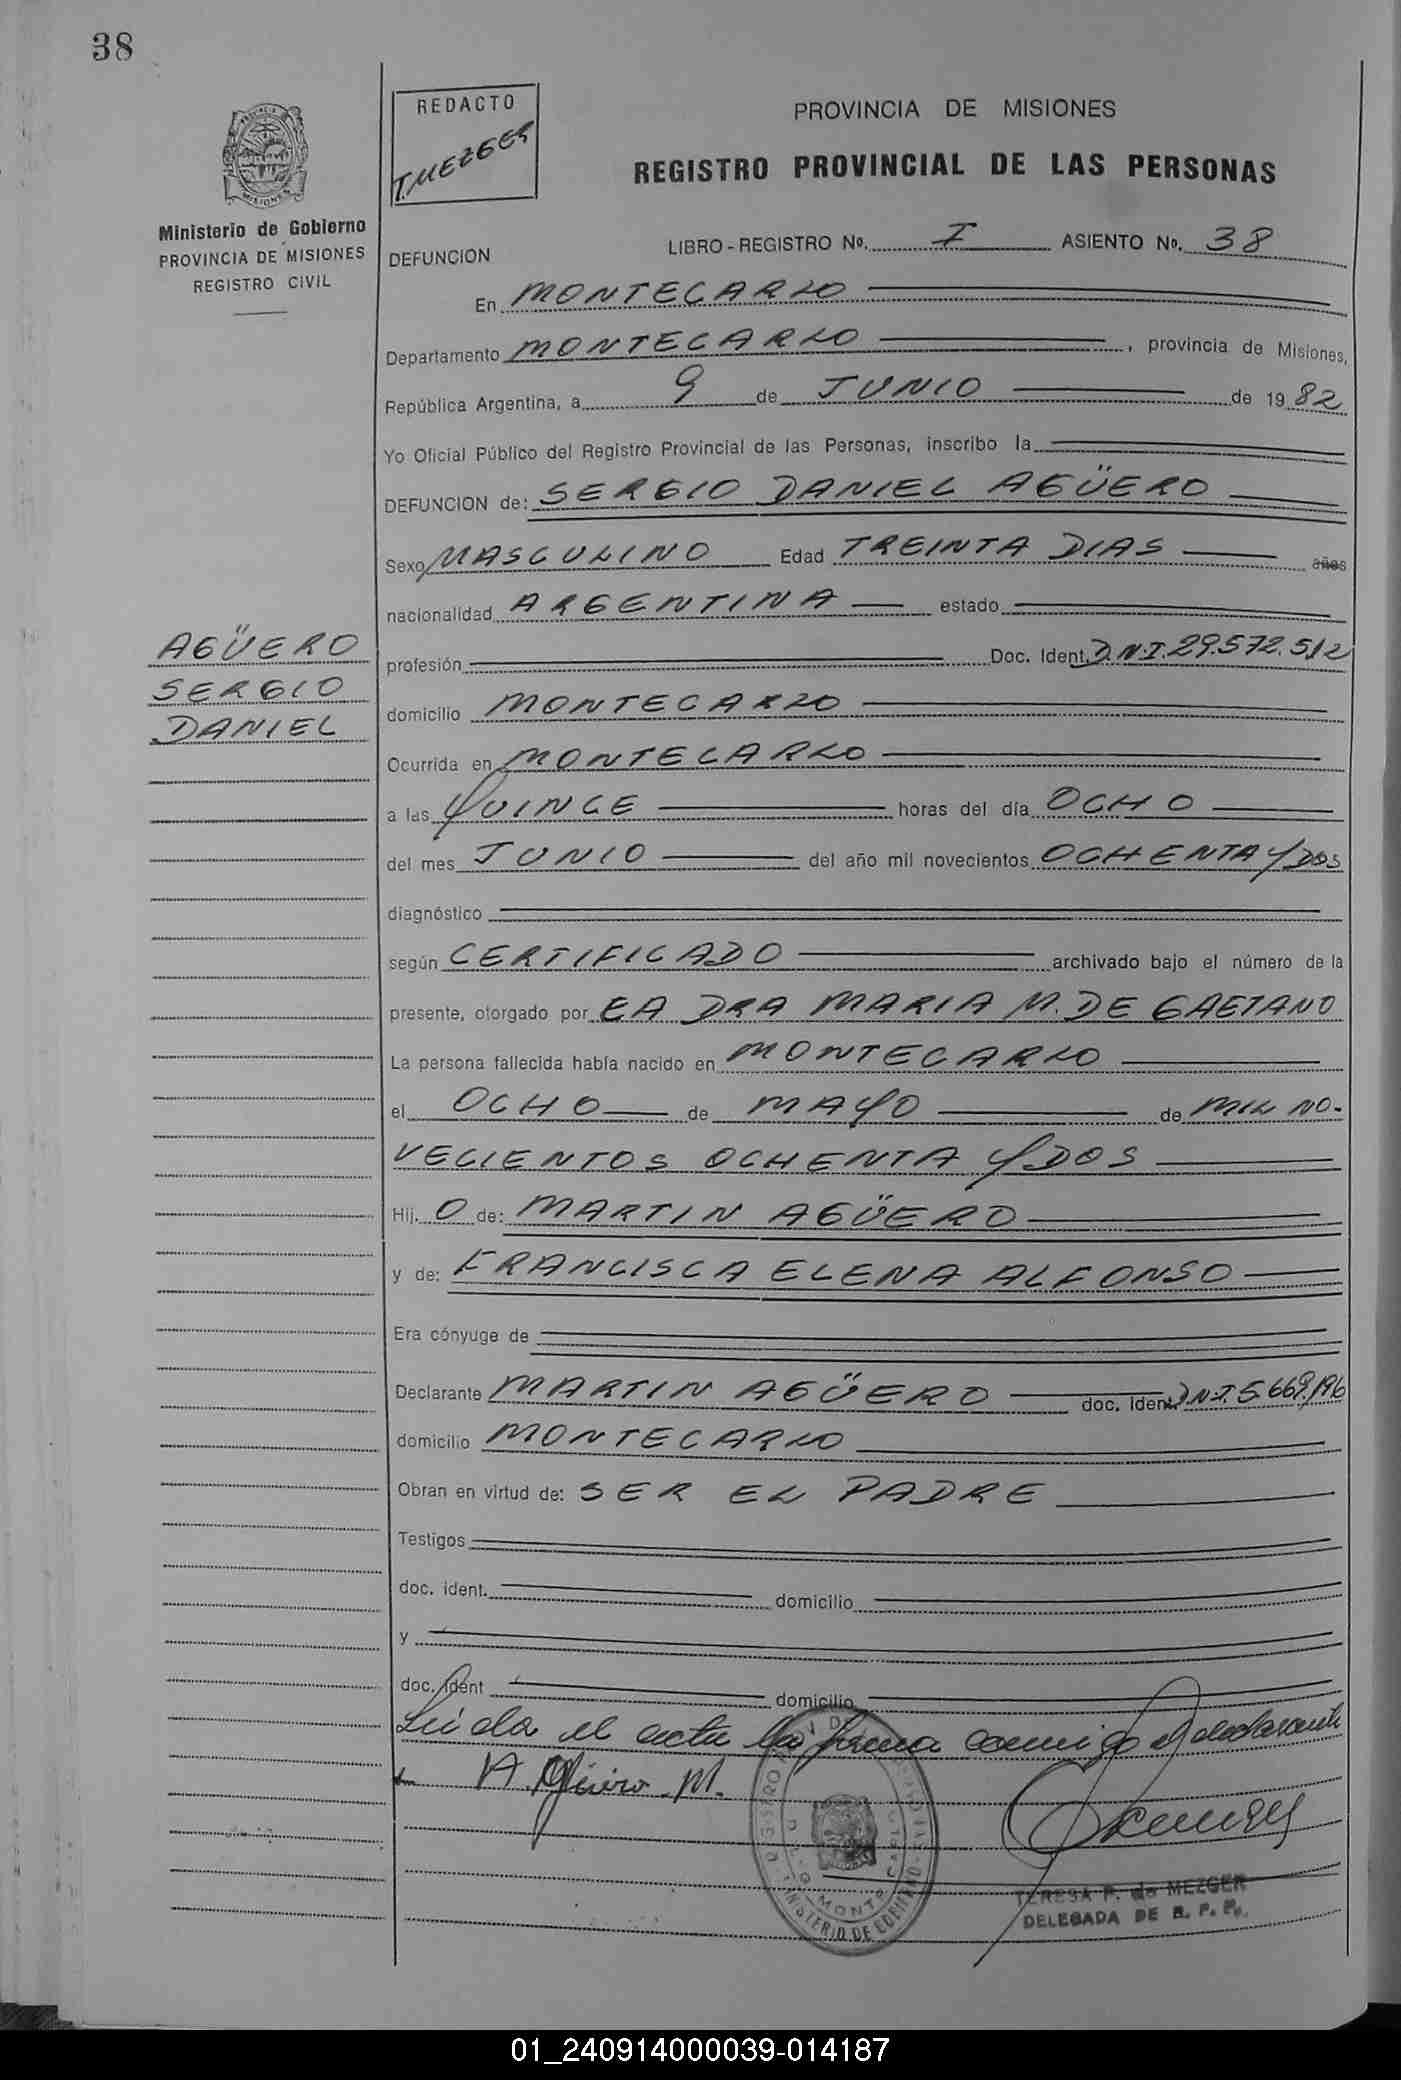 38
REDACTO
T. MEZGER
PROVINCIA DE MISIONES
REGISTRO PROVINCIAL DE LAS PERSONAS
Ministerio de Gobierno
PROVINCIA DE MISIONES
REGISTRO CIVIL
DEFUNCION
LIBRO - REGISTRO Nº. I ASIENTO Nº. 38
En MONTECARLO
Departamento MONTECARLO, provincia de Misiones,
República Argentina, a 9 de JUNIO de 1982
Yo Oficial Público del Registro Provincial de las Personas, inscribo la
DEFUNCION de: SERGIO DANIEL AGÜERO
Sexo MASCULINO Edad TREINTA DIAS años
nacionalidad ARGENTINA estado
AGÜERO
SERGIO
DANIEL
profesión Doc. Ident. D.N.I. 29.572.512
domicilio MONTECARLO
Ocurrida en MONTECARLO
a las QUINCE horas del día OCHO
del mes JUNIO del año mil novecientos OCHENTA Y DOS
diagnóstico
según CERTIFICADO archivado bajo el número de la
presente, otorgado por LA DRA MARIA M. DE GAETANO
La persona fallecida había nacido en MONTECARLO
el OCHO de MAYO de MIL NO-
VECIENTOS OCHENTA Y DOS
Hij. O de: MARTIN AGÜERO
y de: FRANCISCA ELENA ALFONSO
Era cónyuge de
Declarante MARTIN AGÜERO doc. Ident. D.N.I. 5.669.196
domicilio MONTECARLO
Obran en virtud de: SER EL PADRE
Testigos
doc. ident. domicilio
y
doc. ident domicilio
Leida el acta la firma conmigo el declarante
A. Güero. M.
MINISTERIO DE GOBIERNO
TERESA P. de MEZGER
DELEGADA DE R. P. P.
01_240914000039-014187